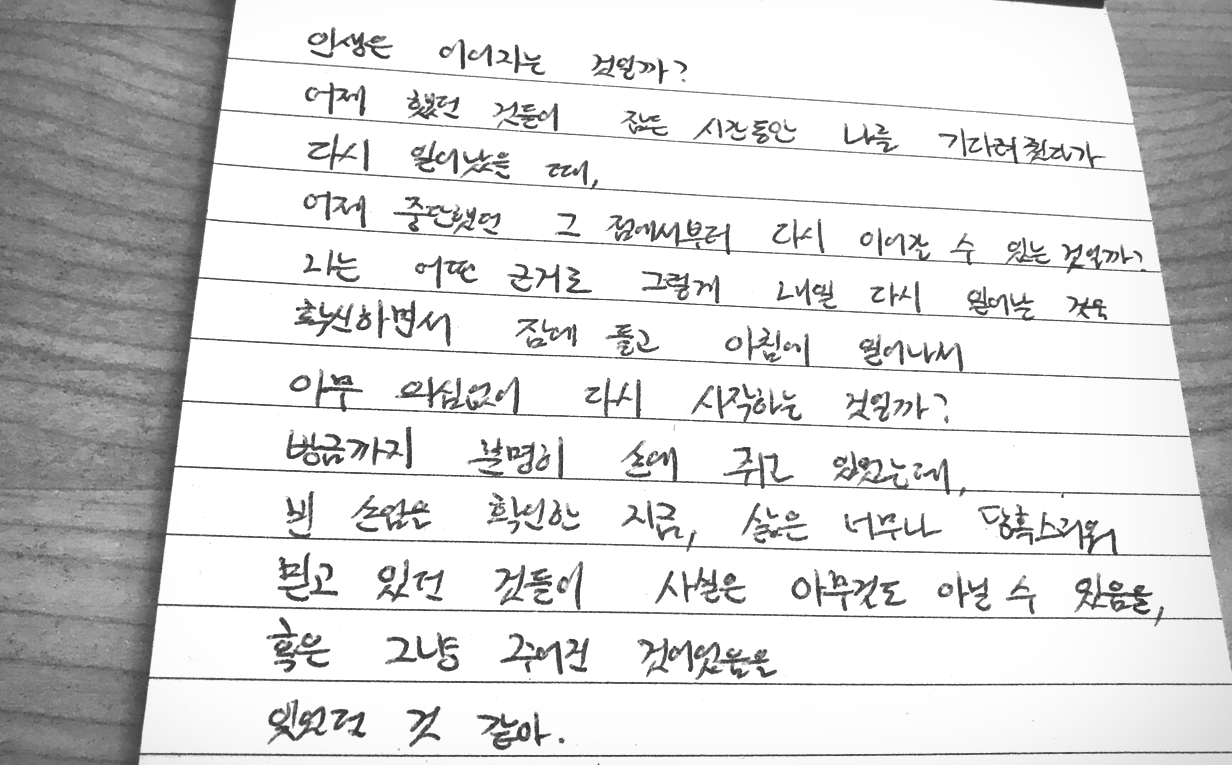 인생은 이어지는 것일까?
어제 했던 것들이 잠든 시간동안 나를 기다려줬다가
다시 일어났을 때,
어제 중단했던 그 점에서부터 다시 이어갈 수 있는 것일까?
나는 어떤 근거로 그렇게 내일 다시 일어날 것을
확신하면서 잠에 들고 아침에 일어나서
아무 의심없이 다시 시작하는 것일까?
방금까지 분명히 손에 쥐고 있었는데,
빈 손임을 확인한 지금, 삶은 너무나 당혹스러워
믿고 있던 것들이 사실은 아무것도 아닐 수 있음을,
혹은 그냥 주어진 것이었음을
잊었던 것 같아.